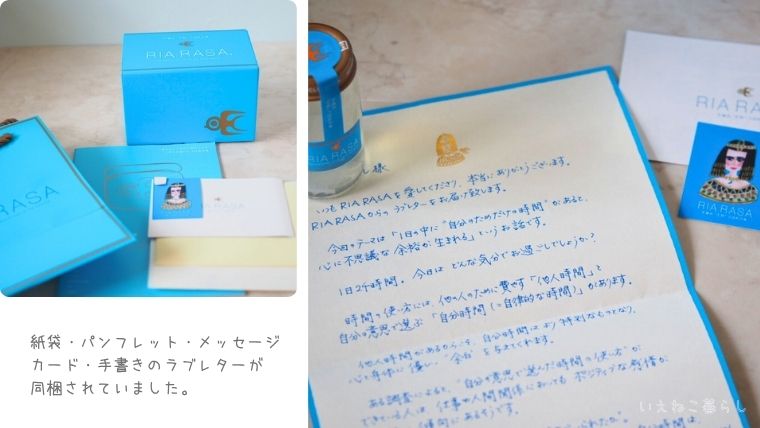 RIA RASA.
RIA RASA
紙袋・パンフレット・メッセージ
カード・手書きのラブレターが
同梱されていました。
RIA RASA
様
いつもRIA RASAを愛してくださり、本当にありがとうございます。
RIA RASAからのラブレターをお届け致します。
今回のテーマは「1日の中に"自分のためだけの時間"があると、
心に不思議な余裕が生まれる」というお話です。
1日24時間。今日はどんな気分でお過ごしでしょうか？
時間の使い方には、他の人のために費やす「他人時間」と
自分の意思で選ぶ「自分時間（=自律的な時間）」があります。
他人時間があるからこそ、自分時間はより特別なものとなり、
心と身体に優しい"余白"を与えてくれます。
ある調査によると、"自分の意思で選んだ時間の使い方"が
できている人は、仕事や人間関係においてもポジティブな感情が
傾向にあるそうです。
RIA RASA
RIA RASA
いえねこ暮らし